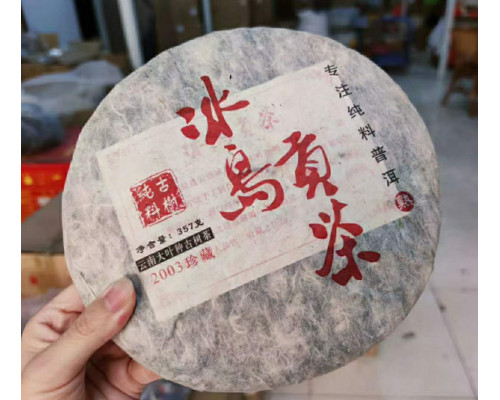 冰鳥貢茶
专注纯料普洱
熟
古樹
純料
净含量：357克
云南大叶种古树茶
2003珍藏